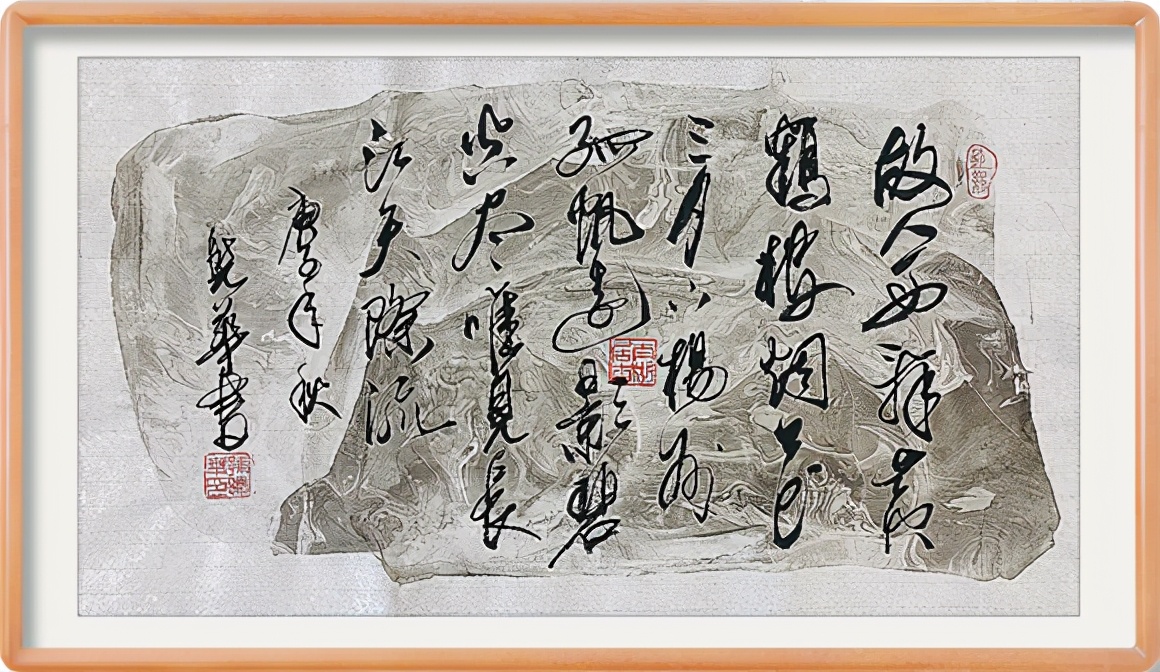 故人西辞黄
鶴樓烟花
三月下楊州
孤帆遠影碧
空尽唯見長
江天際流
庚子年秋
曉華書